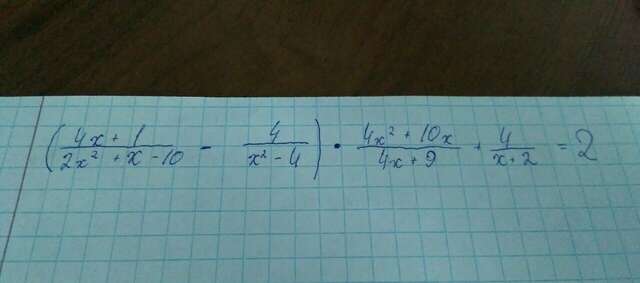 ((4x + 1)/(2x² + x - 10) - 4/(x² - 4)) · (4x² + 10x)/(4x + 9) + 4/(x + 2) = 2